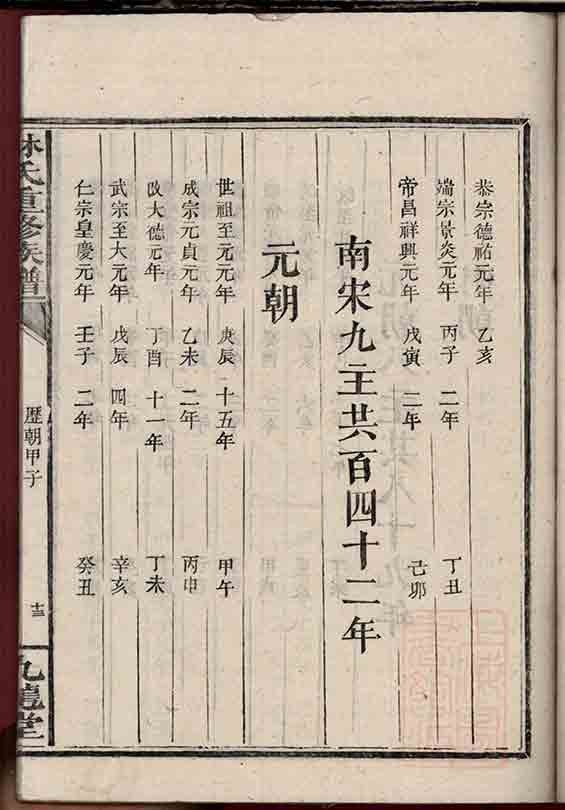 恭宗德祐元年 乙亥
端宗景炎元年 丙子 二年 丁丑
帝昌祥興元年 戊寅 二年 己卯
南宋九主共百四十二年
元朝
世祖至元元年 庚辰 十五年 甲午
成宗元貞元年 乙未 二年 丙申
改大德元年 丁酉 十一年 丁未
武宗至大元年 戊辰 四年 辛亥
仁宗皇慶元年 壬子 二年 癸丑
林氏重修族譜
歷朝甲子
十三
九龍堂